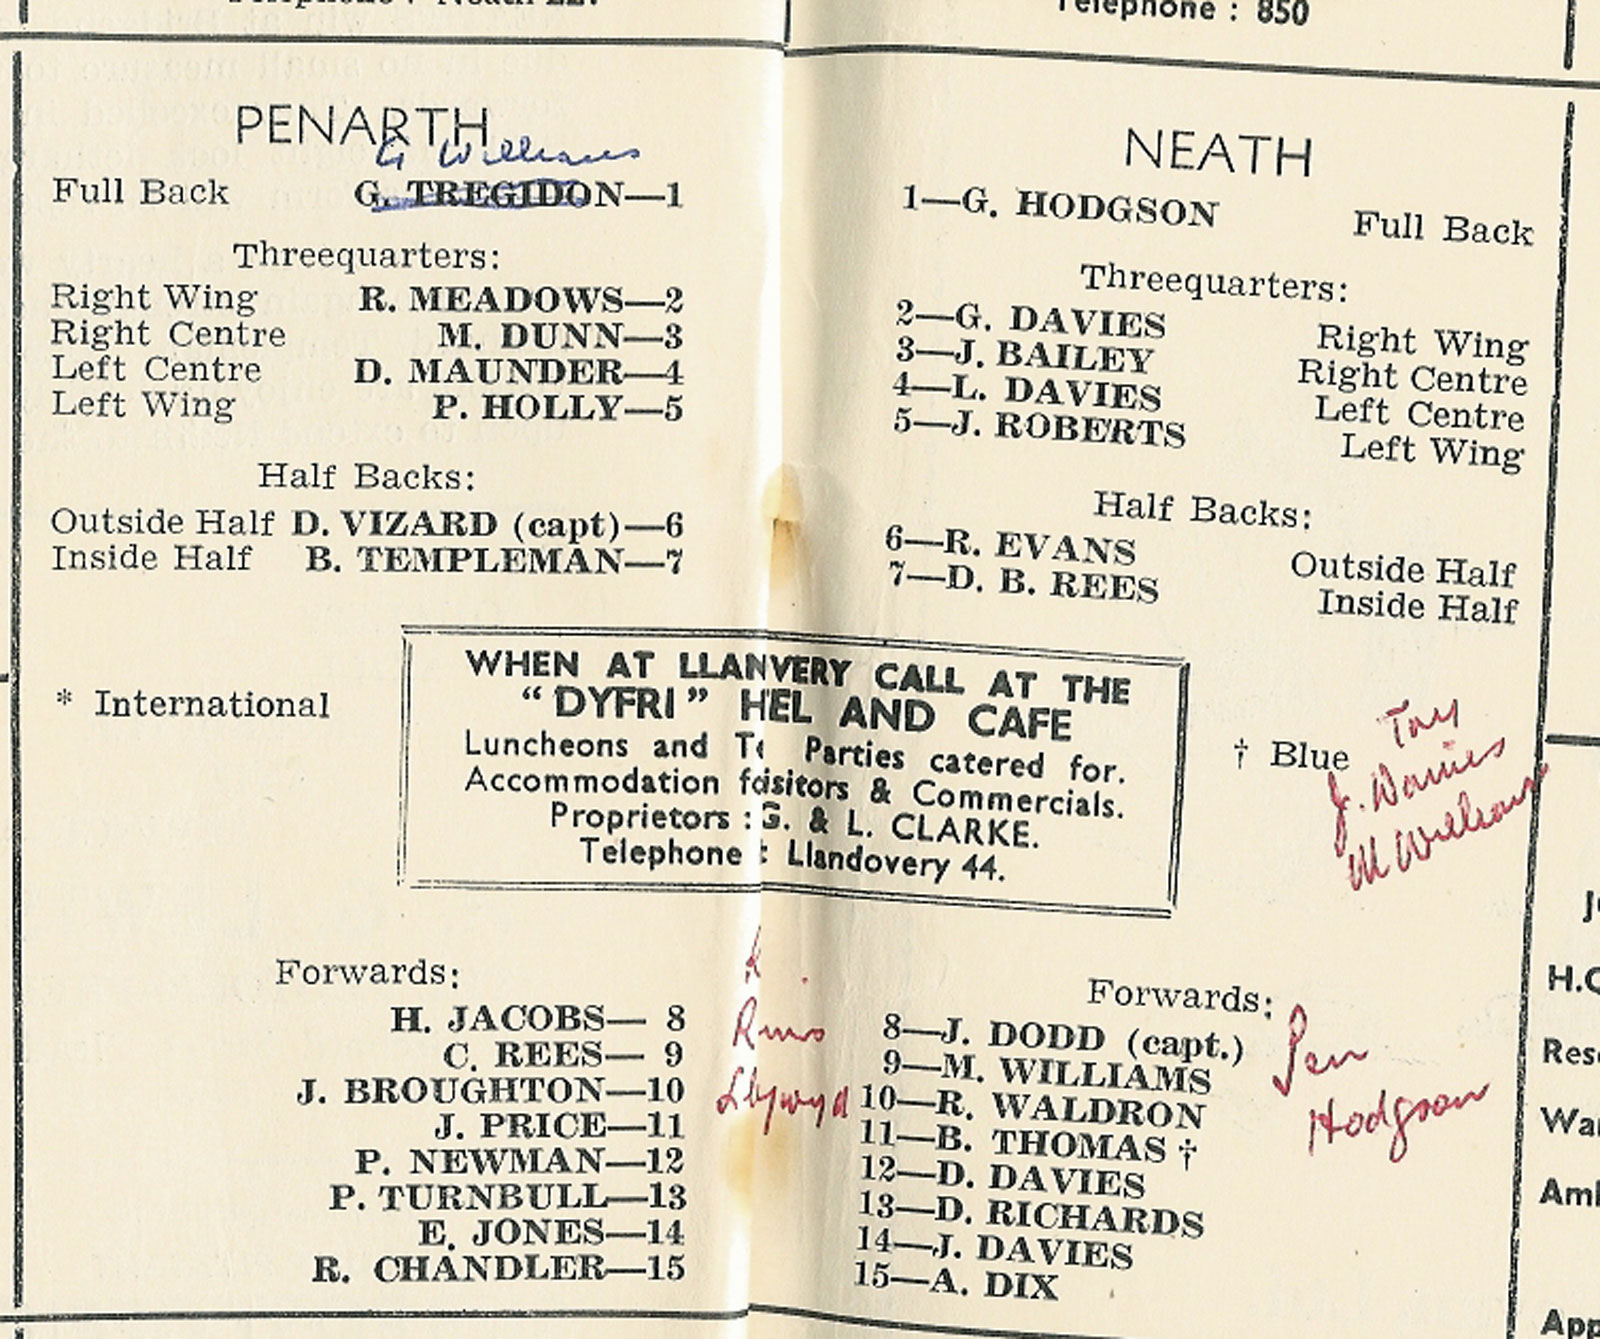 Telephone : 850
PENARTH
G Williams
Full Back G. TREGIDON—1
Threequarters:
Right Wing R. MEADOWS—2
Right Centre M. DUNN—3
Left Centre D. MAUNDER—4
Left Wing P. HOLLY—5
Half Backs:
Outside Half D. VIZARD (capt)—6
Inside Half B. TEMPLEMAN—7
* International
NEATH
1—G. HODGSON Full Back
Threequarters:
2—G. DAVIES Right Wing
3—J. BAILEY Right Centre
4—L. DAVIES Left Centre
5—J. ROBERTS Left Wing
Half Backs:
6—R. EVANS Outside Half
7—D. B. REES Inside Half
WHEN AT LLANVERY CALL AT THE
“DYFRI” HEL AND CAFE
Luncheons and Te Parties catered for.
Accommodation fisitors & Commercials.
Proprietors : G. & L. CLARKE.
Telephone : Llandovery 44.
† Blue
J. Davies
M Williams
Forwards:
H. JACOBS— 8
C. REES— 9
J. BROUGHTON—10
J. PRICE—11
P. NEWMAN—12
P. TURNBULL—13
E. JONES—14
R. CHANDLER—15
Forwards:
8—J. DODD (capt.)
9—M. WILLIAMS
10—R. WALDRON
11—B. THOMAS †
12—D. DAVIES
13—D. RICHARDS
14—J. DAVIES
15—A. DIX
Hodgson